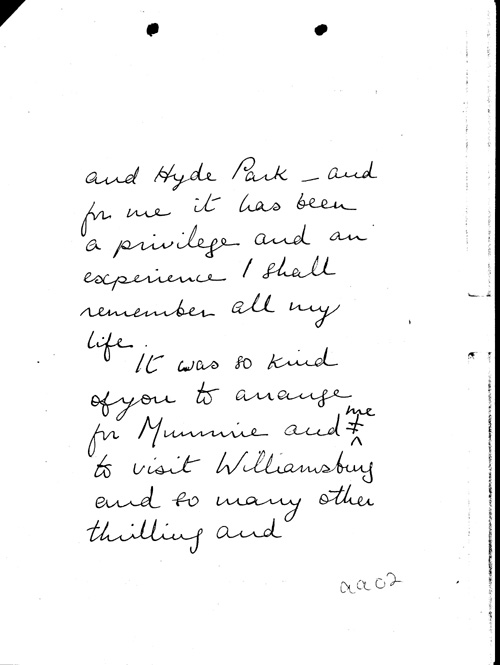 and Hyde Park – and
for me it has been
a privilege and an
experience I shall
remember all my
life.
It was so kind
of you to arrange
for Mummie and me
to visit Williamsburg
and so many other
thrilling and
aa02